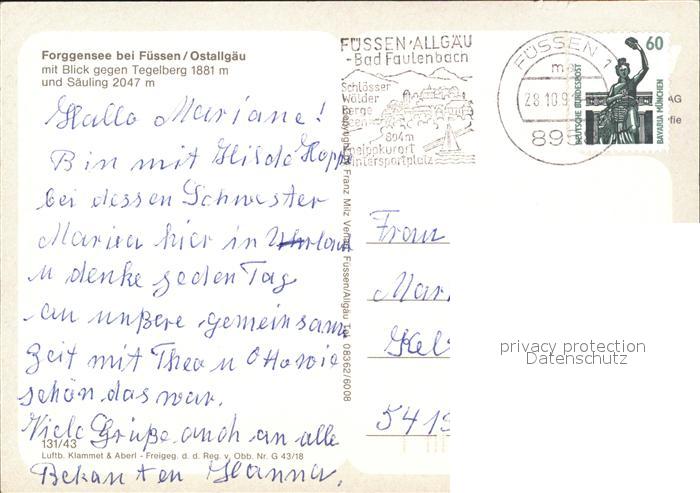 Forggensee bei Füssen/Ostallgäu
mit Blick gegen Tegelberg 1881 m
und Säuling 2047 m
Hallo Mariane!
Bin mit Hilde Hoppe
bei dessen Schwester
Mariea hier in Uhrlaub
u denke jeden Tag
an unßere gemeinsame
Zeit mit Theo u Otto wie
schön das war.
Viele Grüße auch an alle
Bekannten Hanna.
131/43
Luftb. Klammet & Aberl - Freigeg. d. d. Reg. v. Obb. Nr. G 43/18
Franz Milz Verlag, Füssen/Allgäu Tel. 08362/6008
FÜSSEN·ALLGÄU
-Bad Faulenbach
Schlösser
Wälder
Berge
Seen
804m
Kneippkurort
Wintersportplatz
FÜSSEN 1
m
28.10.9
895
60
DEUTSCHE BUNDESPOST
BAVARIA MÜNCHEN
AG
fie
Frau
Mar
Kel
5419
privacy protection
Datenschutz